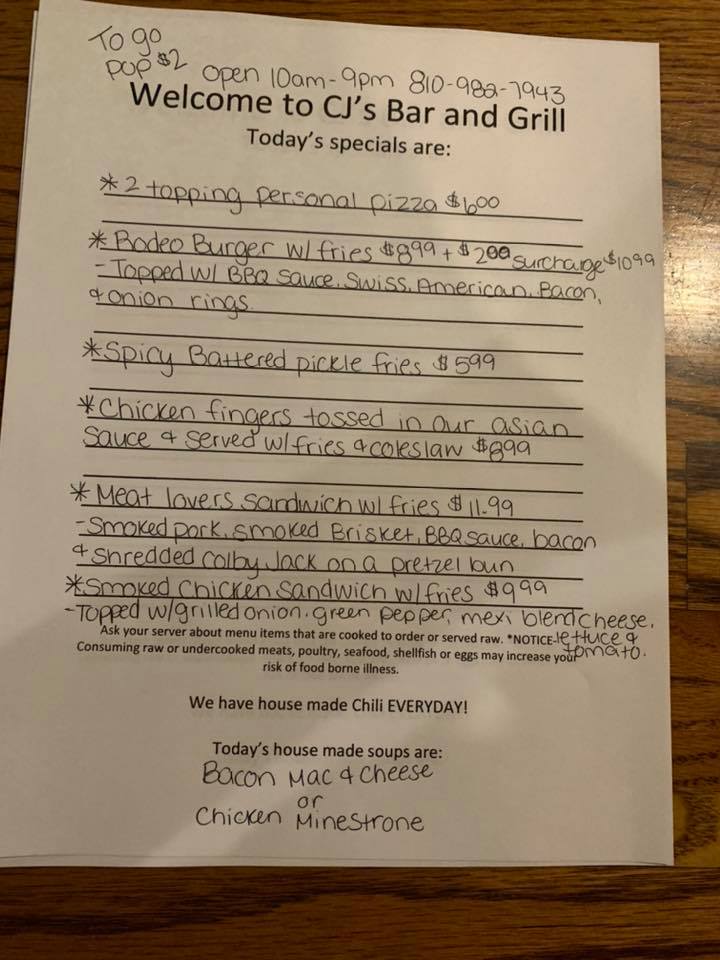 To go
pop $2 open 10am-9pm 810-982-7943
Welcome to CJ's Bar and Grill
Today's specials are:
* 2 topping personal pizza $600
* Rodeo Burger w/ fries $899 + $200 surcharge $1099
- Topped w/ BBQ sauce, Swiss, American, Bacon,
& onion rings.
* Spicy Battered pickle fries $599
* Chicken fingers tossed in our asian
sauce & served w/ fries & coleslaw $899
* Meat lovers sandwich w/ fries $11.99
- Smoked pork, smoked Brisket, BBQ sauce, bacon
& shredded colby Jack on a pretzel bun
* Smoked Chicken Sandwich w/ fries $999
- Topped w/ grilled onion, green pepper, mexi blend cheese,
lettuce &
tomato.
Ask your server about menu items that are cooked to order or served raw. *NOTICE-
Consuming raw or undercooked meats, poultry, seafood, shellfish or eggs may increase your
risk of food borne illness.
We have house made Chili EVERYDAY!
Today's house made soups are:
Bacon Mac & Cheese
or
Chicken Minestrone